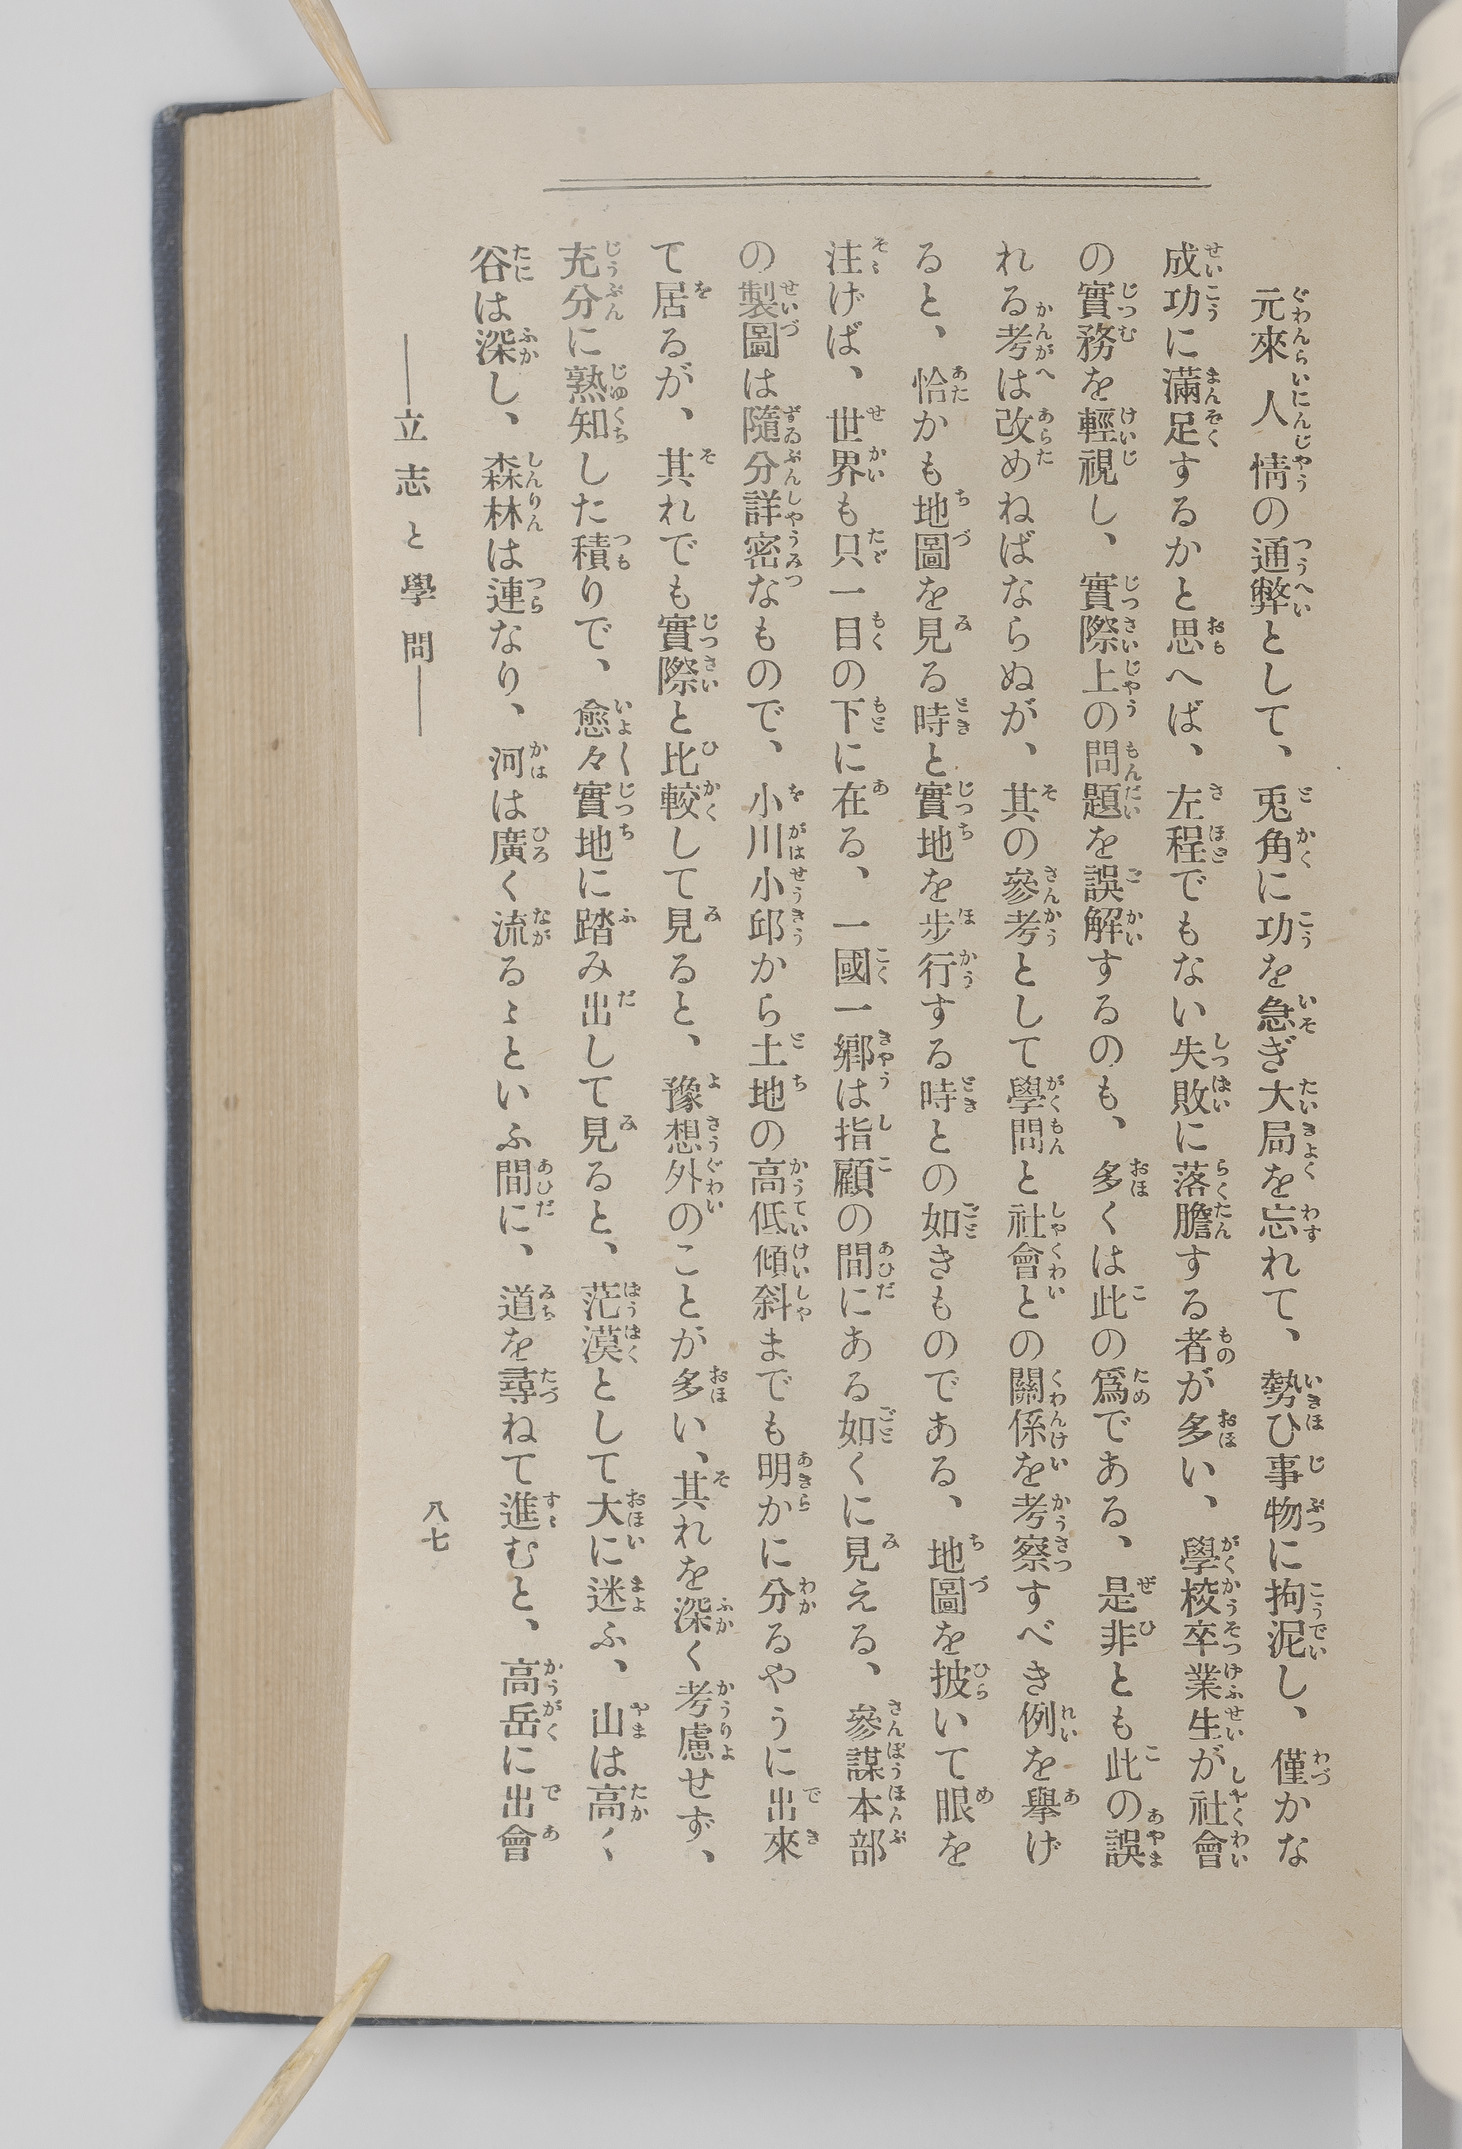 元來人情の通弊として、兎角に功を急ぎ大局を忘れて、勢ひ事物に拘泥し、僅かな
成功に滿足するかと思へば、左程でもない失敗に落膽する者が多い、學校卒業生が社會
の實務を輕視し、實際上の問題を誤解するのも、多くは此の爲である、是非とも此の誤
れる考は改めねばならぬが、其の參考として學問と社會との關係を考察すべき例を擧げ
ると、恰かも地圖を見る時と實地を步行する時との如きものである、地圖を披いて眼を
注げば、世界も只一目の下に在る、一國一鄕は指顧の間にある如くに見える、參謀本部
の製圖は隨分詳密なもので、小川小邱から土地の高低傾斜までも明かに分るやうに出來
て居るが、其れでも實際と比較して見ると、豫想外のことが多い、其れを深く考慮せず、
充分に熟知した積りで、愈々實地に踏み出して見ると、茫漠として大に迷ふ、山は高く
谷は深し、森林は連なり、河は廣く流るゝといふ間に、道を尋ねて進むと、高岳に出會
――立志と學問――
八七